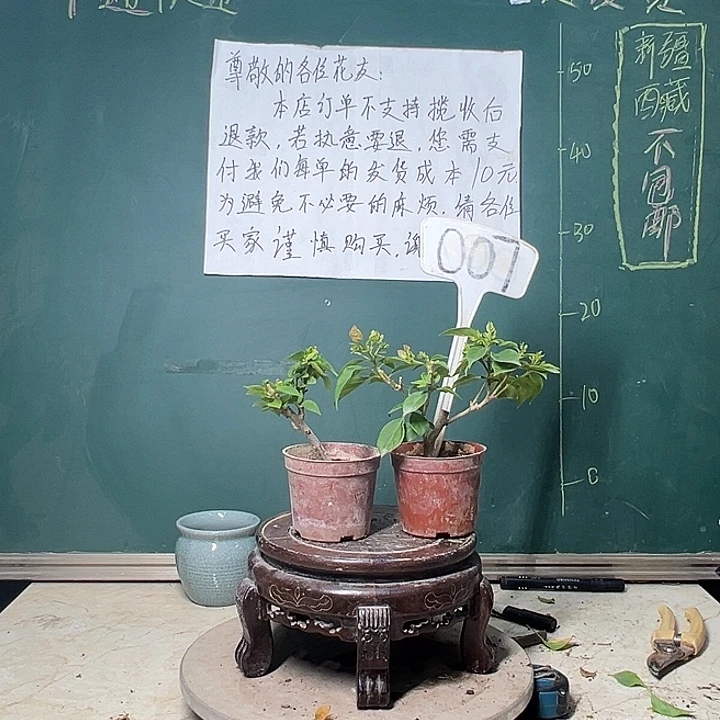 尊敬的各位花友：
本店订单不支持揽收后
退款，若执意要退，您需支
付我们每单的发货成本10元
为避免不必要的麻烦，请各位
买家谨慎购买，谢
007
50
40
30
20
10
0
新疆
西藏
不包邮